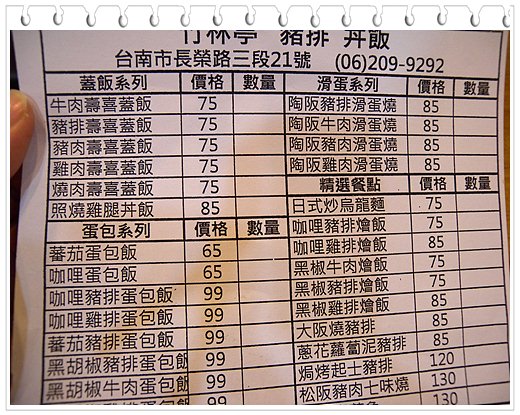 竹林亭 豬排 丼飯
台南市長榮路三段21號 (06)209-9292
蓋飯系列 價格 數量
牛肉壽喜蓋飯 75
豬排壽喜蓋飯 75
豬肉壽喜蓋飯 75
雞肉壽喜蓋飯 75
燒肉壽喜蓋飯 75
照燒雞腿丼飯 85
蛋包系列 價格 數量
蕃茄蛋包飯 65
咖哩蛋包飯 65
咖哩豬排蛋包飯 99
咖哩雞排蛋包飯 99
蕃茄豬排蛋包飯 99
黑胡椒豬排蛋包飯 99
黑胡椒牛肉蛋包飯 99
99
滑蛋系列 價格 數量
陶阪豬排滑蛋燒 85
陶阪牛肉滑蛋燒 85
陶阪豬肉滑蛋燒 85
陶阪雞肉滑蛋燒 85
精選餐點 價格 數量
日式炒烏龍麵 75
咖哩豬排燴飯 75
咖哩雞排燴飯 85
黑椒牛肉燴飯 75
黑椒豬肉燴飯 75
黑椒雞排燴飯 85
大阪燒豬排 85
蔥花蘿蔔泥豬排 85
焗烤起士豬排 120
松阪豬肉七味燒 130
130